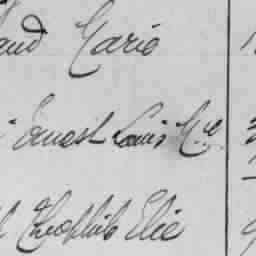 aud Marie
Ernest Louis Mce
Théophile Elie